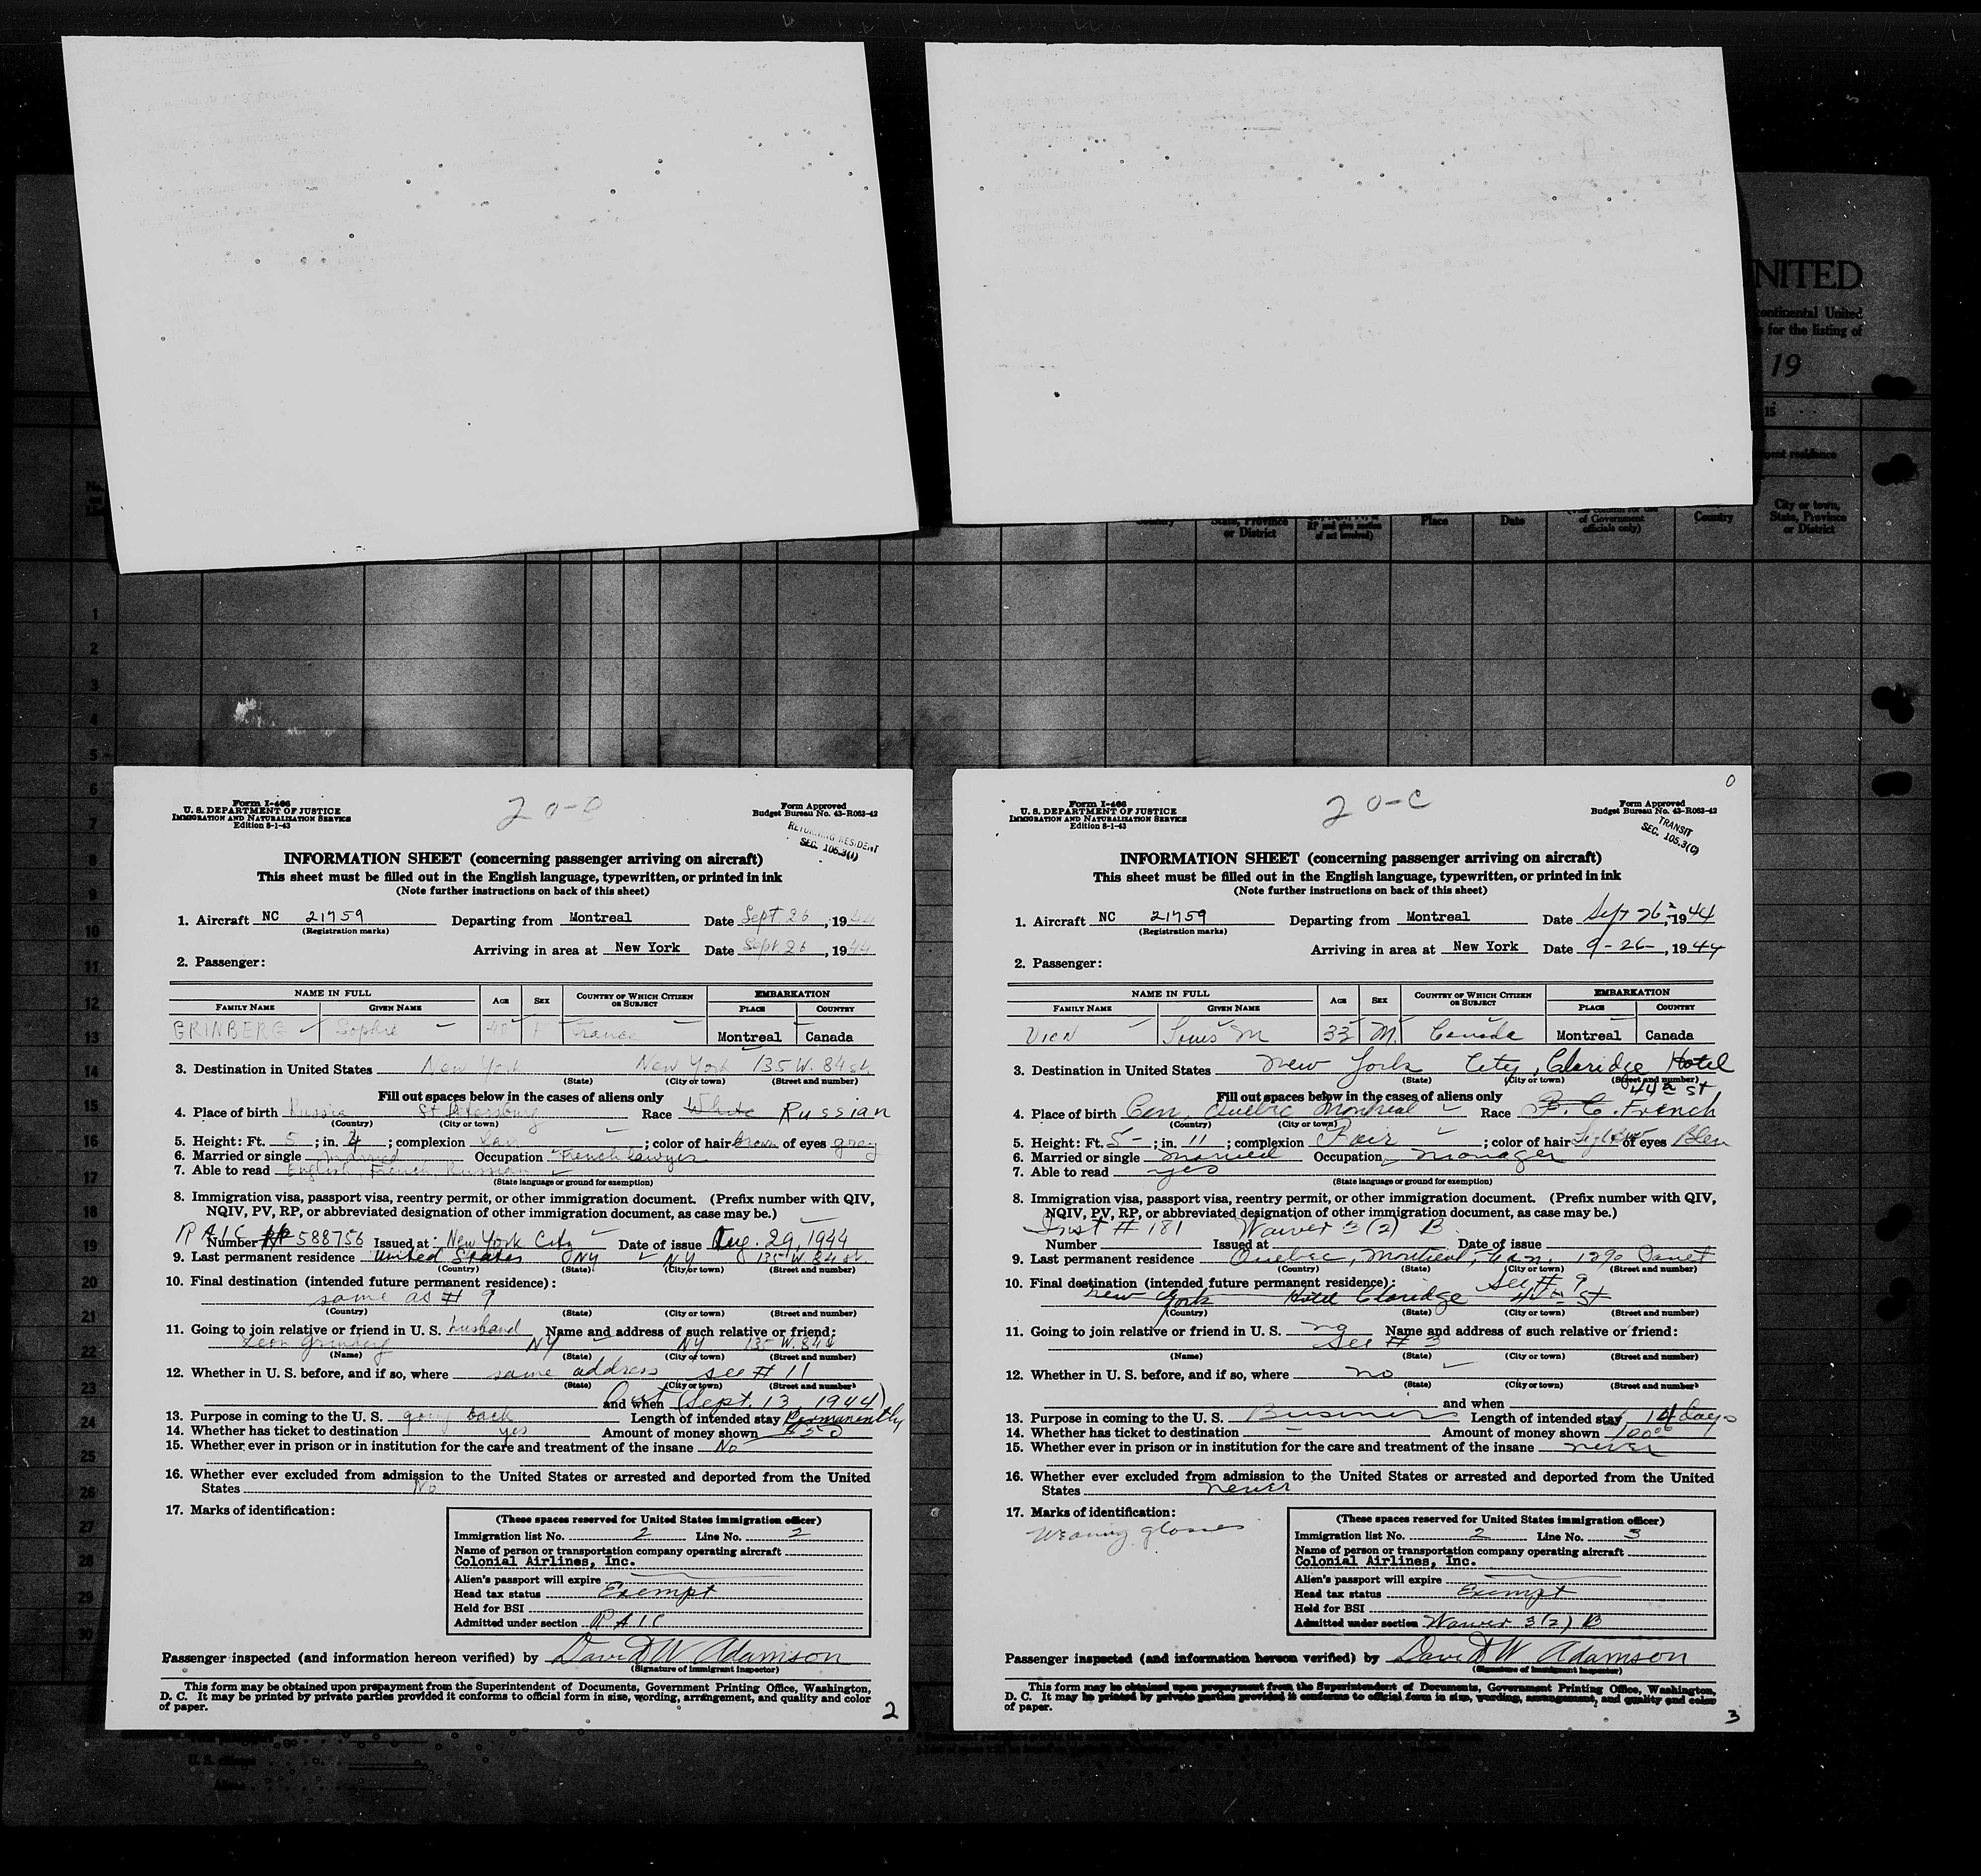 NITED
continental United
s for the listing of
19
15
gent residence
Country
State, Province
or District
RP and give section
of act involved)
Place
Date
of Government
officials only)
Country
City or town,
State, Province
or District
1
2
3
4
5
6
7
8
9
10
11
12
13
14
15
16
17
18
19
20
21
22
23
24
25
26
27
28
29
30
Form I-466
U. S. DEPARTMENT OF JUSTICE
IMMIGRATION AND NATURALIZATION SERVICE
Edition 8-1-43
20-B
Form Approved
Budget Bureau No. 43-R063-42
RETURNING RESIDENT
SEC. 105.3(1)
INFORMATION SHEET (concerning passenger arriving on aircraft)
This sheet must be filled out in the English language, typewritten, or printed in ink
(Note further instructions on back of this sheet)
1. Aircraft NC 21759 Departing from Montreal Date Sept 26, 1944
(Registration marks)
Arriving in area at New York Date Sept 26, 1944
2. Passenger:
NAME IN FULL AGE SEX COUNTRY OF WHICH CITIZEN OR SUBJECT EMBARKATION
FAMILY NAME GIVEN NAME PLACE COUNTRY
GRINBERG Sophie 48 F France Montreal Canada
3. Destination in United States New York New York 135 W. 84 st
(State) (City or town) (Street and number)
Fill out spaces below in the cases of aliens only
4. Place of birth Russia St Petersburg Race White Russian
(Country) (City or town)
5. Height: Ft. 5; in. 4; complexion fair; color of hair brown of eyes grey
6. Married or single married Occupation French lawyer
7. Able to read English, French, Russian
(State language or ground for exemption)
8. Immigration visa, passport visa, reentry permit, or other immigration document. (Prefix number with QIV,
NQIV, PV, RP, or abbreviated designation of other immigration document, as case may be.)
RAIC
Number 588756 Issued at: New York City Date of issue Aug. 29, 1944
9. Last permanent residence United States NY NY 135 W. 84 st.
(Country) (State) (City or town) (Street and number)
10. Final destination (intended future permanent residence):
same as # 9
(Country) (State) (City or town) (Street and number)
11. Going to join relative or friend in U. S. husband Name and address of such relative or friend:
Leon Grinberg NY NY 135 W. 84
(Name) (State) (City or town) (Street and number)
12. Whether in U. S. before, and if so, where same address see # 11
(State) (City or town) (Street and number)
and when (Sept. 13, 1944)
13. Purpose in coming to the U. S. going back Length of intended stay Permanently
14. Whether has ticket to destination yes Amount of money shown $50
15. Whether ever in prison or in institution for the care and treatment of the insane No
16. Whether ever excluded from admission to the United States or arrested and deported from the United
States No
17. Marks of identification:
(These spaces reserved for United States immigration officer)
Immigration list No. 2 Line No. 2
Name of person or transportation company operating aircraft
Colonial Airlines, Inc.
Alien's passport will expire
Head tax status Exempt
Held for BSI
Admitted under section RAIC
Passenger inspected (and information hereon verified) by David W Adamson
(Signature of immigrant inspector)
This form may be obtained upon prepayment from the Superintendent of Documents, Government Printing Office, Washington,
D. C. It may be printed by private parties provided it conforms to official form in size, wording, arrangement, and quality and color
of paper.
2
0
Form I-466
U. S. DEPARTMENT OF JUSTICE
IMMIGRATION AND NATURALIZATION SERVICE
Edition 8-1-43
20-C
Form Approved
Budget Bureau No. 43-R063-42
TRANSIT
SEC. 105.3(C)
INFORMATION SHEET (concerning passenger arriving on aircraft)
This sheet must be filled out in the English language, typewritten, or printed in ink
(Note further instructions on back of this sheet)
1. Aircraft NC 21759 Departing from Montreal Date Sept 26, 1944
(Registration marks)
Arriving in area at New York Date 9-26-, 1944
2. Passenger:
NAME IN FULL AGE SEX COUNTRY OF WHICH CITIZEN OR SUBJECT EMBARKATION
FAMILY NAME GIVEN NAME PLACE COUNTRY
Louis M 33 M. Canada Montreal Canada
3. Destination in United States New York City, Claridge Hotel
(State) (City or town) (Street and number)
44th St
Fill out spaces below in the cases of aliens only
4. Place of birth Can, Quebec Montreal Race F. C. French
(Country) (City or town)
5. Height: Ft. 5-; in. 11; complexion Fair; color of hair of eyes Blue
6. Married or single married Occupation manager
7. Able to read yes
(State language or ground for exemption)
8. Immigration visa, passport visa, reentry permit, or other immigration document. (Prefix number with QIV,
NQIV, PV, RP, or abbreviated designation of other immigration document, as case may be.)
Inst # 181 Waiver 3(2) B
Number Issued at Date of issue
9. Last permanent residence Quebec, Montreal, Can. 1290
(Country) (State) (City or town) (Street and number)
10. Final destination (intended future permanent residence): See # 9
New York Hotel Claridge 44th St
(Country) (State) (City or town) (Street and number)
11. Going to join relative or friend in U. S. no Name and address of such relative or friend:
See # 3
(Name) (State) (City or town) (Street and number)
12. Whether in U. S. before, and if so, where no
(State) (City or town) (Street and number)
and when
13. Purpose in coming to the U. S. Business Length of intended stay 14 days
14. Whether has ticket to destination Amount of money shown 100.00
15. Whether ever in prison or in institution for the care and treatment of the insane never
16. Whether ever excluded from admission to the United States or arrested and deported from the United
States never
17. Marks of identification:
Wearing glasses
(These spaces reserved for United States immigration officer)
Immigration list No. 2 Line No. 3
Name of person or transportation company operating aircraft
Colonial Airlines, Inc.
Alien's passport will expire
Head tax status Exempt
Held for BSI
Admitted under section Waiver 3(2) B
Passenger inspected (and information hereon verified) by David W Adamson
(Signature of immigrant inspector)
This form may be obtained upon prepayment from the Superintendent of Documents, Government Printing Office, Washington,
D. C. It may be printed by private parties provided it conforms to official form in size, wording, arrangement, and quality and color
of paper.
3